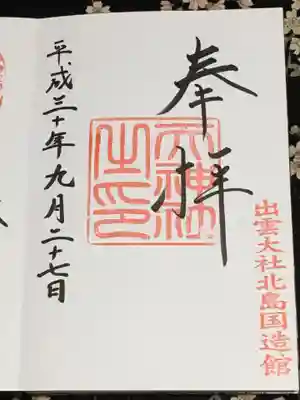 奉拝
出雲大社北島国造館
天神社之印
平成三十年九月二十七日